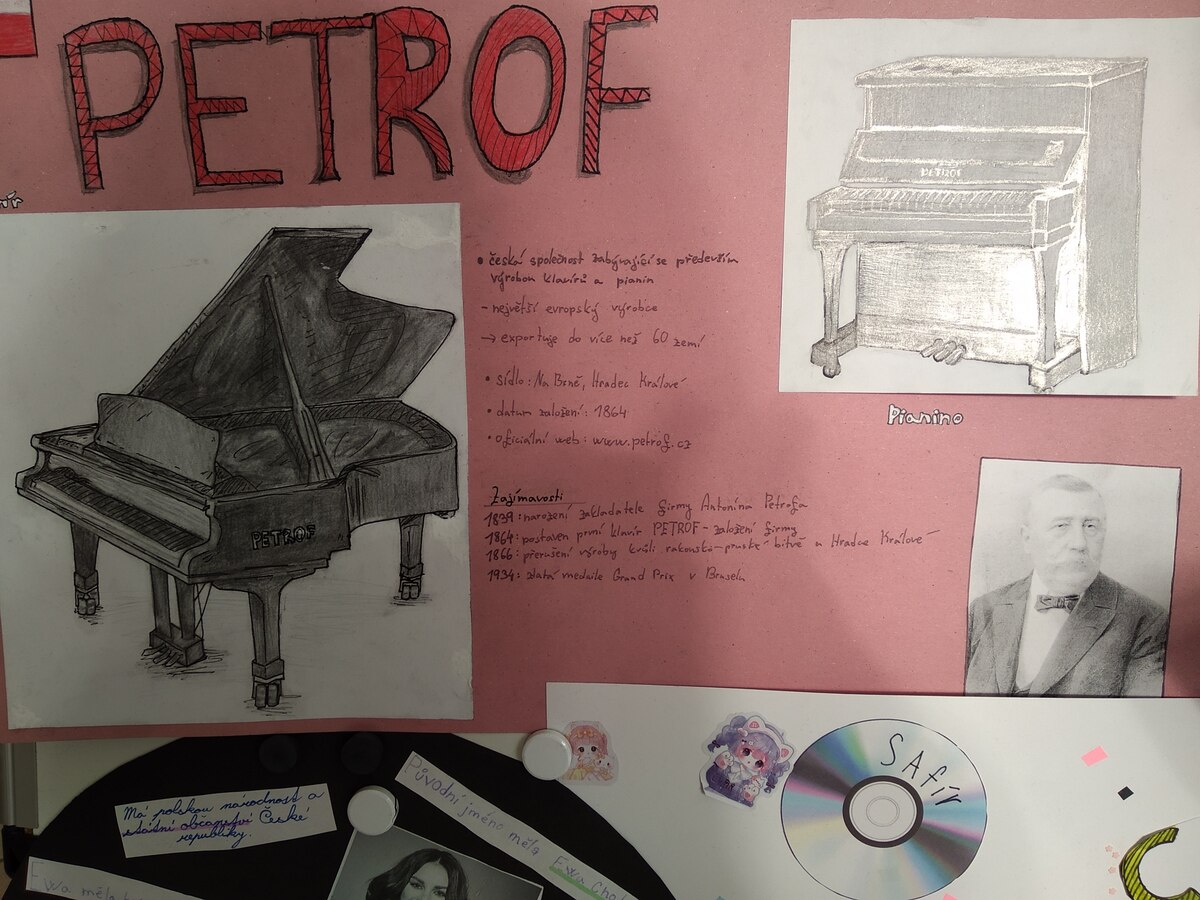 PETROF
PETROF
PETROF
Pianino
• česká společnost zabývající se především
výrobou klavírů a pianin
- největší evropský výrobce
→ exportuje do více než 60 zemí
• sídlo: Na Brně, Hradec Králové
• datum založení: 1864
• oficiální web: www.petrof.cz
Zajímavosti
1839: narození zakladatele firmy Antonína Petrofa
1864: postaven první klavír PETROF - založení firmy
1866: přerušení výroby kvůli rakousko-pruské bitvě u Hradce Králové
1934: zlatá medaile Grand Prix v Bruselu
SAfír
Má polskou národnost a
státní občanství České
republiky.
Původní jméno měla Ewa
Ewa měla